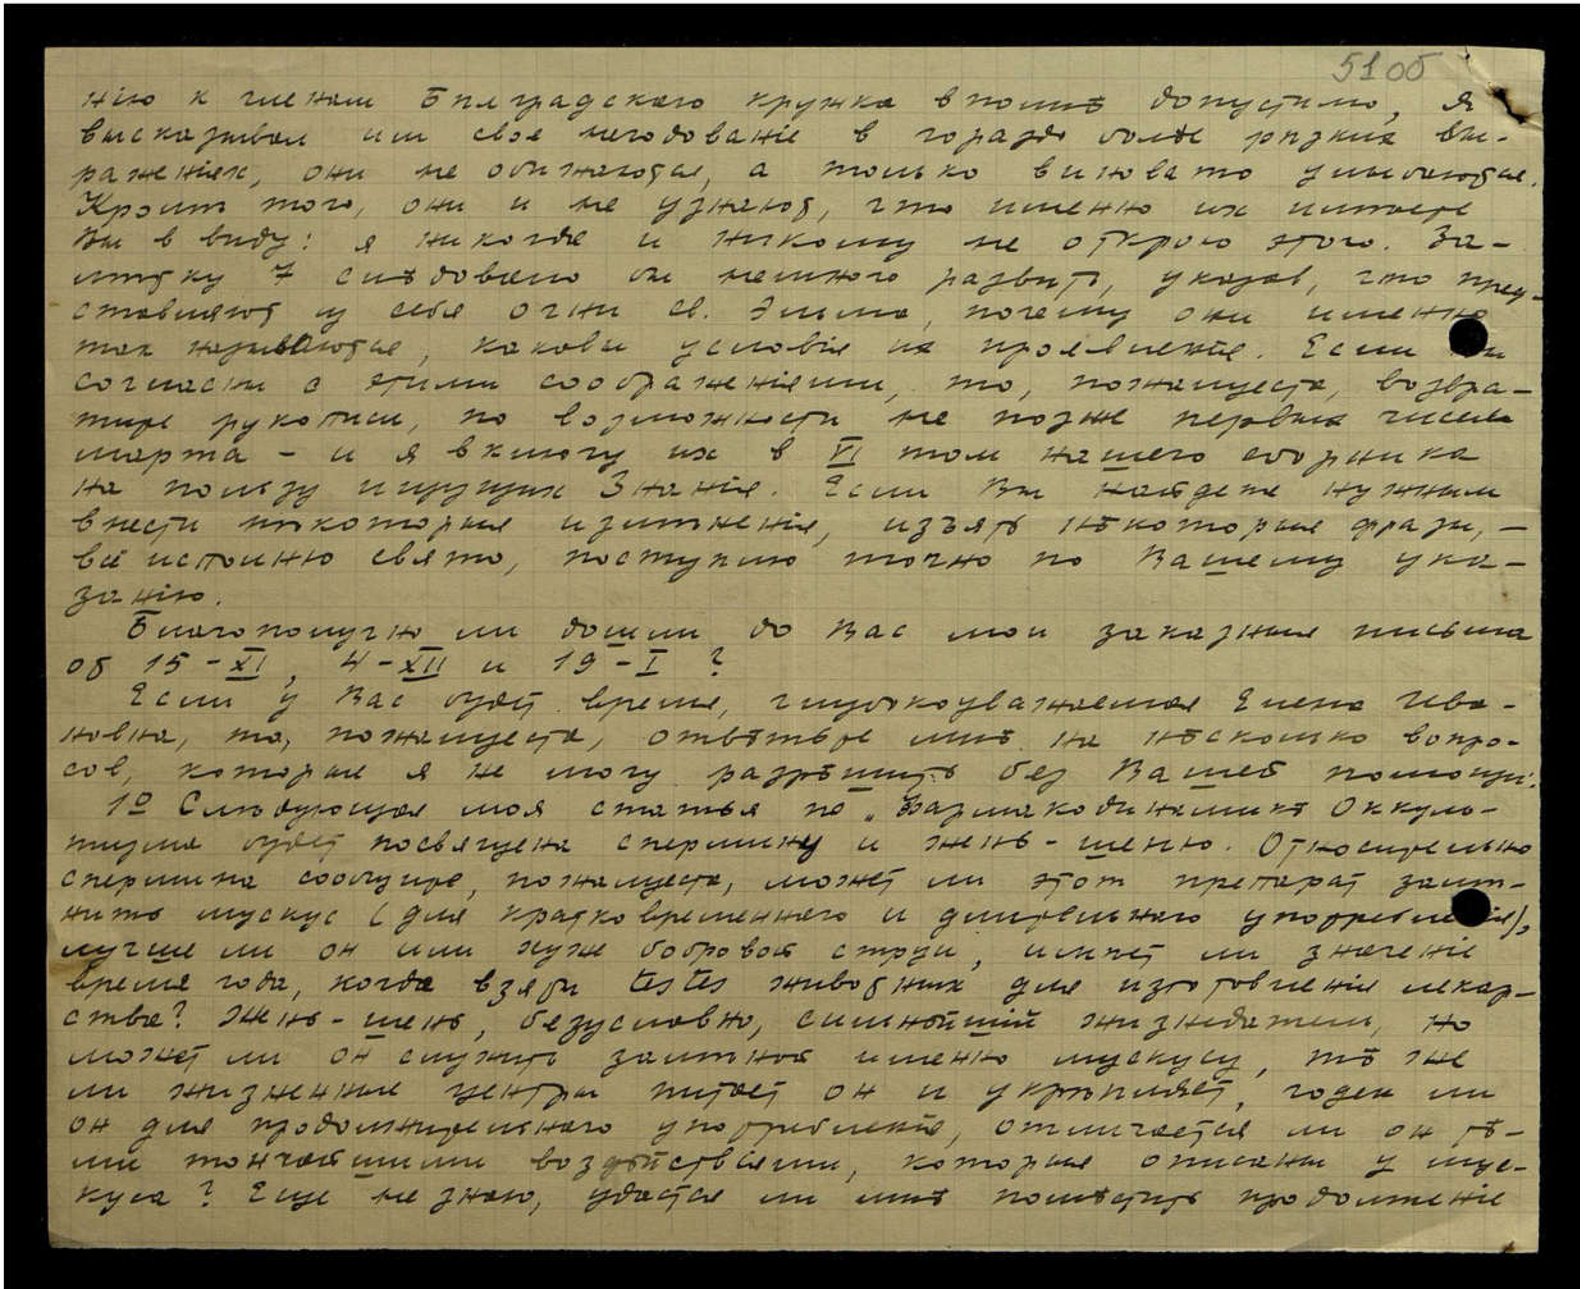 51об
нію к членам Бѣлградскаго кружка вполнѣ допустимо, я
высказывал им свое негодованіе в гораздо болѣе рѣзких вы-
раженіях, они не обижаются, а только виновато улыбаются.
Кромѣ того, они и не узнают, что именно их имѣете
Вы в виду: я никогда и никому не открою этого. За-
мѣтку 7 слѣдовало бы немного развить, указав, что пред-
ставляют из себя огни св. Эльма, почему они именно
так называются, каковы условія их проявленія. Если Вы
согласны с этими соображеніями, то, пожалуйста, возвра-
тите рукописи, по возможности не позже первых чисел
марта - и я включу их в VI том нашего сборника
на пользу ищущих Знанія. Если Вы найдете нужным
внести нѣкоторыя измѣненія, изъять нѣкоторыя фразы, -
всё исполню свято, поступлю точно по Вашему ука-
занію.
Благополучно ли дошли до Вас мои заказныя письма
от 15-XI, 4-XII и 19-I ?
Если у Вас будет время, глубокоуважаемая Елена Ива-
новна, то, пожалуйста, отвѣтьте мнѣ на нѣсколько вопро-
сов, которые я не могу разрѣшить без Вашей помощи:
1º Слѣдующая моя статья по „Фармакодинамикѣ Оккуль-
тизма будет посвящена спермину и жень-шеню. Относительно
спермина сообщите, пожалуйста, может ли этот препарат замѣ-
нить мускус (для кратковременнаго и длительнаго употребленія),
лучше ли он или хуже бобровой струи, имѣет ли значеніе
время года, когда взяты testes животных для изготовленія лекар-
ства? Жень-шень, безусловно, сильнѣйшій жизнедатель, но
может ли он служить замѣной именно мускусу, тѣ же
ли жизненные центры питает он и укрѣпляет, годен ли
он для продолжительнаго употребленія, отличается ли он тѣ-
ми тончайшими воздѣйствіями, которыя описаны у мус-
куса? Еще не знаю, удастся ли мнѣ помѣстить продолженіе